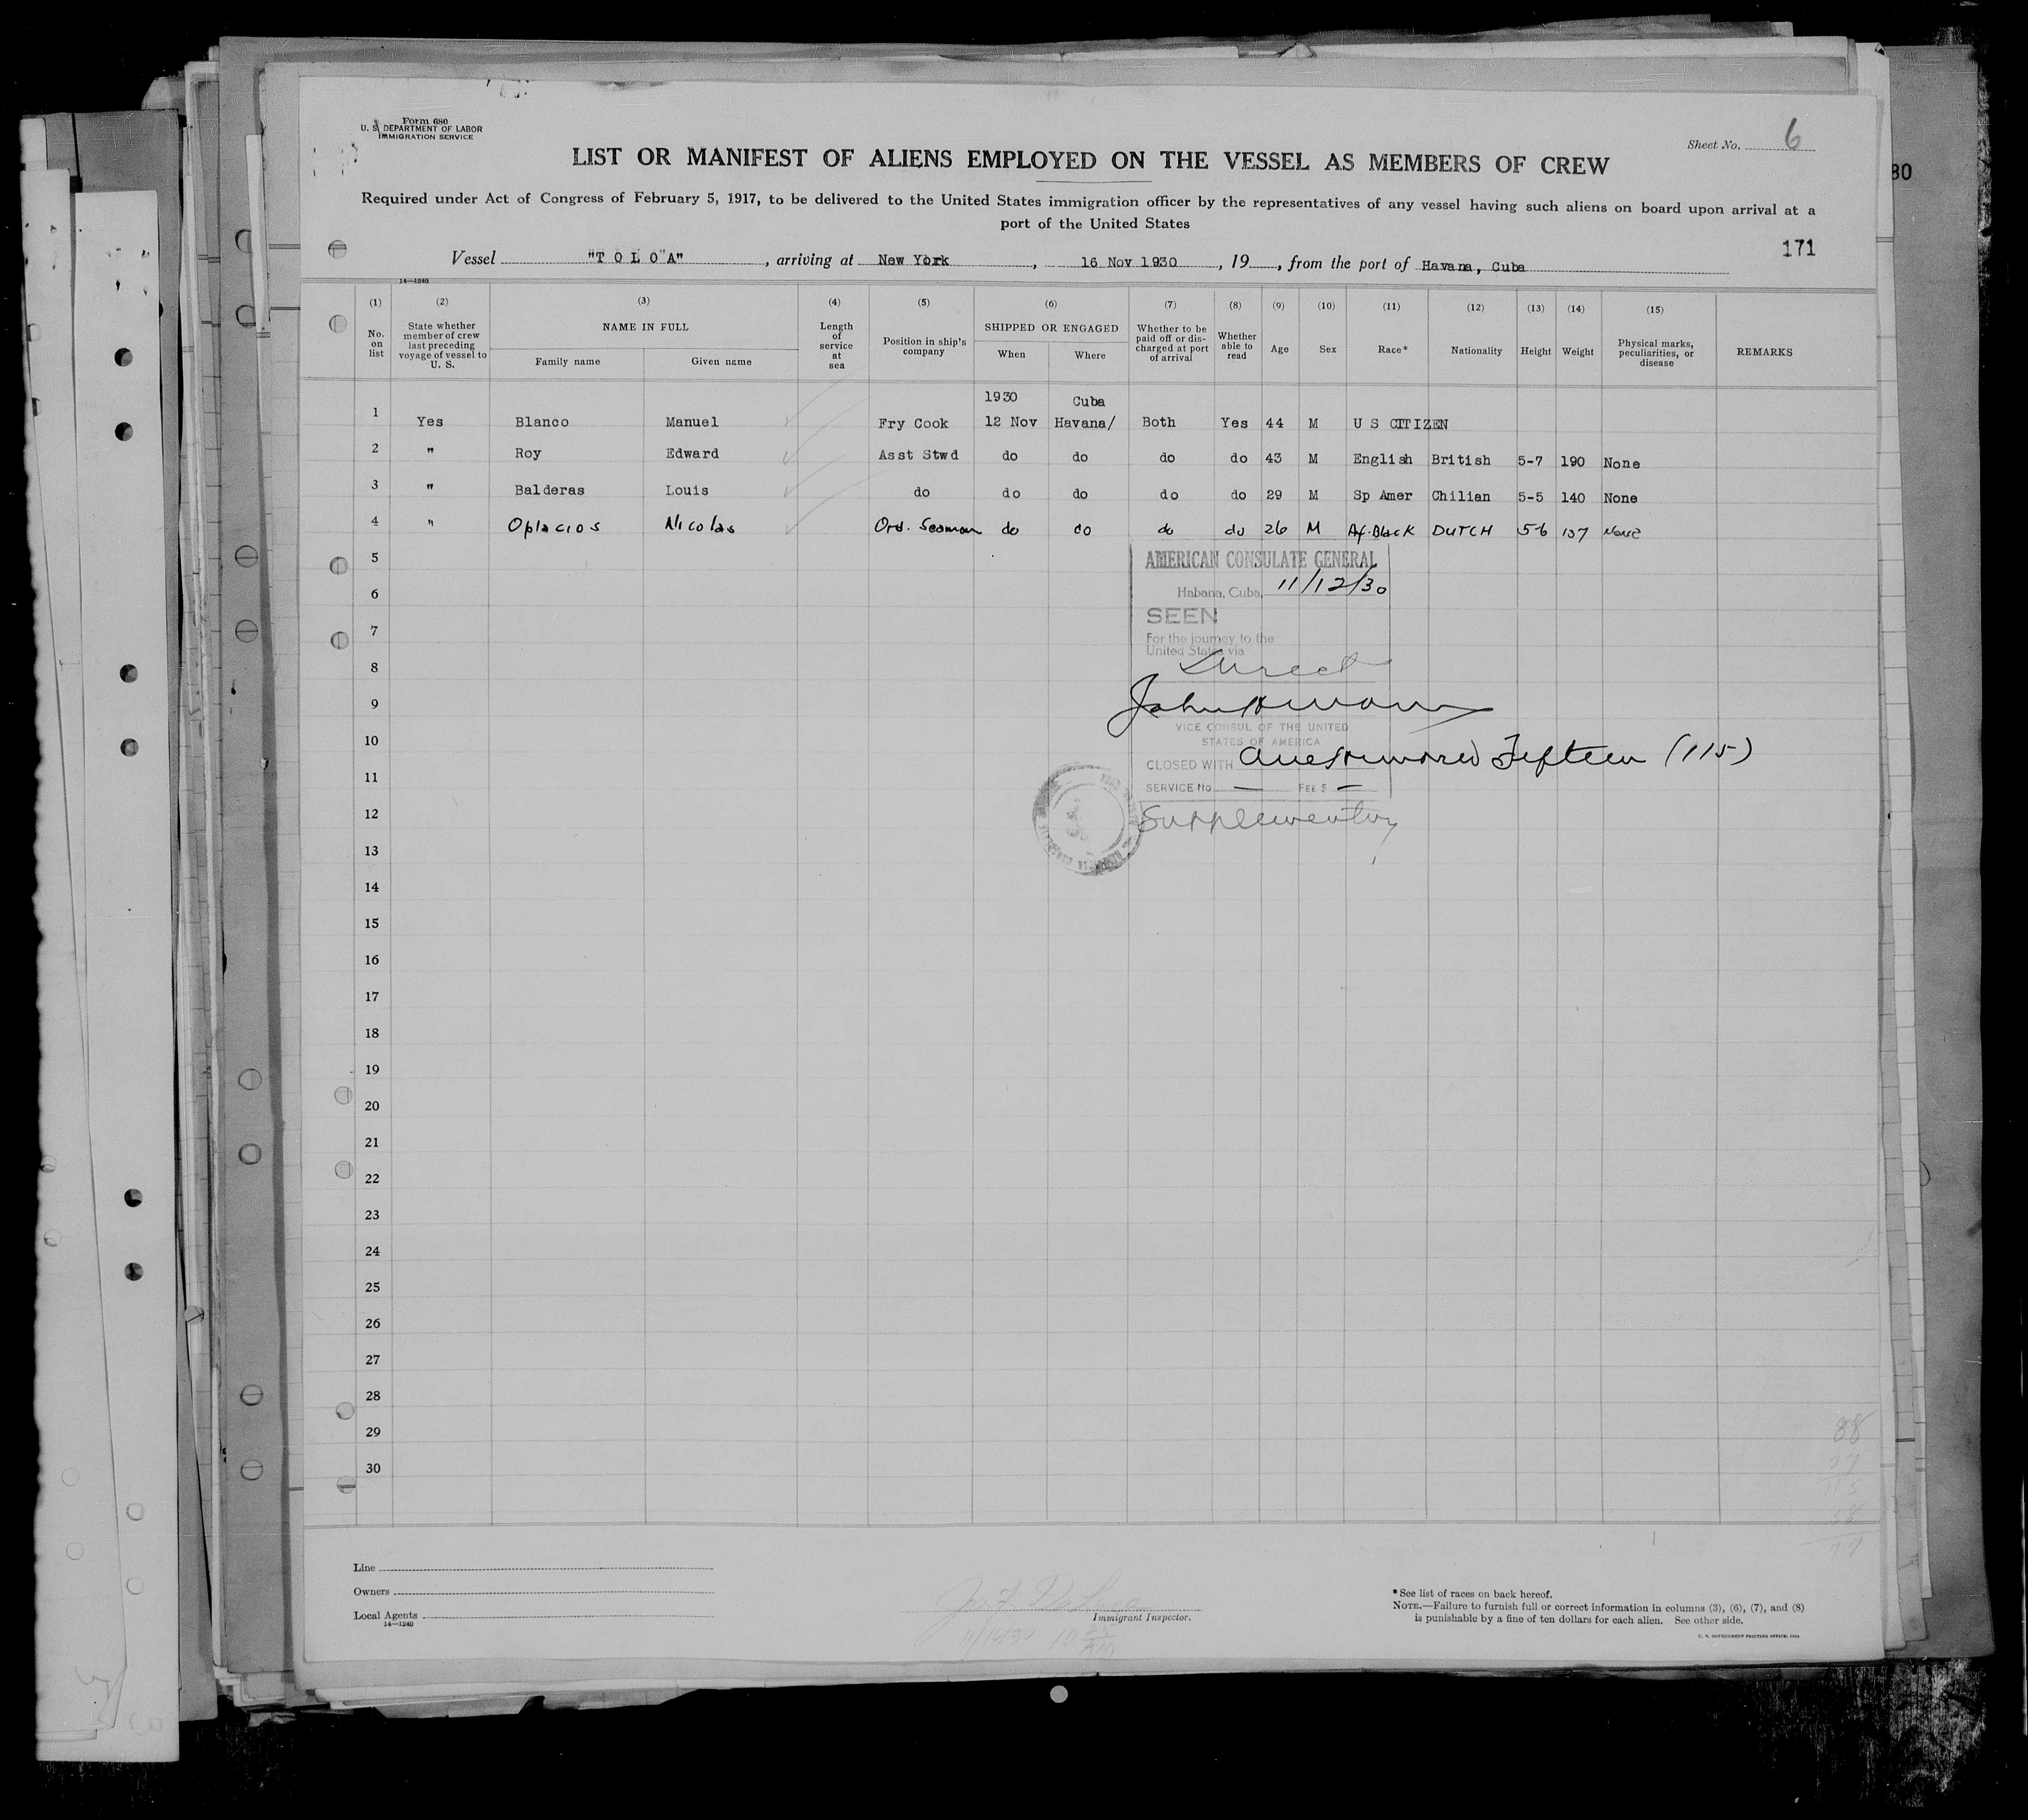 Form 680
U. S. DEPARTMENT OF LABOR
IMMIGRATION SERVICE
Sheet No. 6
LIST OR MANIFEST OF ALIENS EMPLOYED ON THE VESSEL AS MEMBERS OF CREW
80
Required under Act of Congress of February 5, 1917, to be delivered to the United States immigration officer by the representatives of any vessel having such aliens on board upon arrival at a
port of the United States
171
Vessel "T O L O "A", arriving at New York, 16 Nov 1930, 19, from the port of Havana, Cuba
14—1240
(1) (2) (3) (4) (5) (6) (7) (8) (9) (10) (11) (12) (13) (14) (15)
No. on list State whether member of crew last preceding voyage of vessel to U. S. NAME IN FULL Family name Given name Length of service at sea Position in ship's company SHIPPED OR ENGAGED When Where Whether to be paid off or discharged at port of arrival Whether able to read Age Sex Race* Nationality Height Weight Physical marks, peculiarities, or disease REMARKS
1930 Cuba
1 Yes Blanco Manuel Fry Cook 12 Nov Havana/ Both Yes 44 M U S CITIZEN
2 " Roy Edward Asst Stwd do do do do 43 M English British 5-7 190 None
3 " Balderas Louis do do do do do 29 M Sp Amer Chilian 5-5 140 None
4 " Oplacios Nicolas Ord. Seaman do do do do 26 M Af. Black DUTCH 5-6 137 None
5
AMERICAN CONSULATE GENERAL
6
Habana, Cuba, 11/12/30
SEEN
7
For the journey to the
United States via
8
Direct
9
John
VICE CONSUL OF THE UNITED
STATES OF AMERICA
10
CLOSED WITH One Hundred Fifteen (115)
11
SERVICE No. — FEE $ —
12
Supplementary
13
14
15
16
17
18
19
20
21
22
23
24
25
26
27
28
29
88
27
30
115
38
77
Line
Owners
Local Agents
14—1240
Immigrant Inspector.
11/16/30 10
*See list of races on back hereof.
NOTE.—Failure to furnish full or correct information in columns (3), (6), (7), and (8)
is punishable by a fine of ten dollars for each alien. See other side.